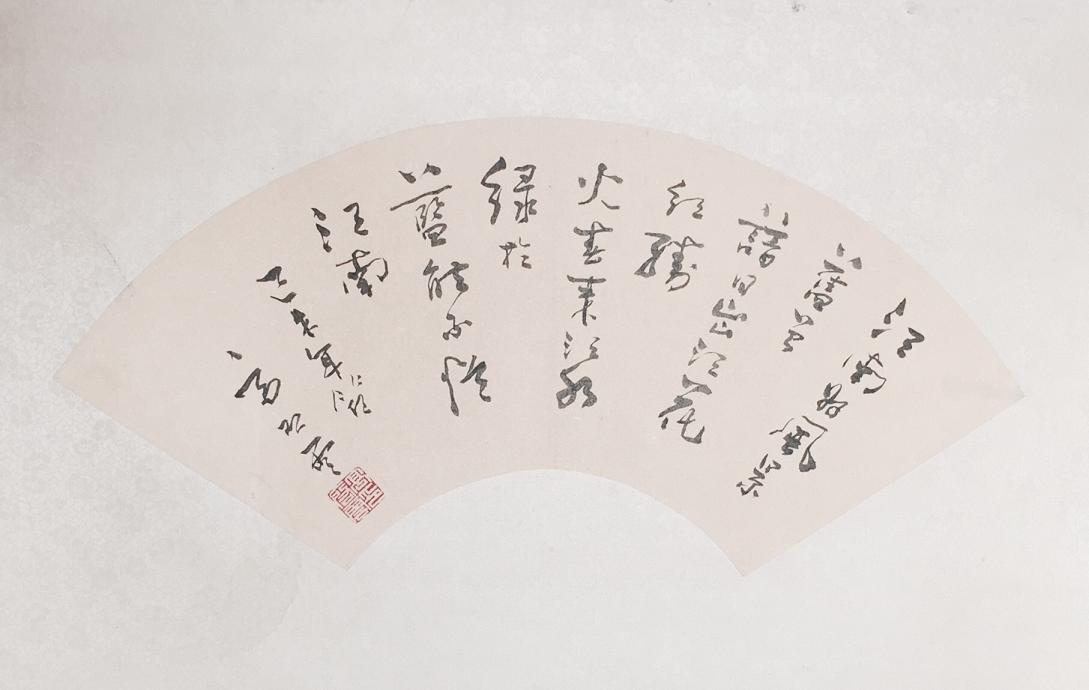 江南好風景
舊曾
諳日出江花
紅勝
火春來江水
綠於
藍能不憶
江南
己未年